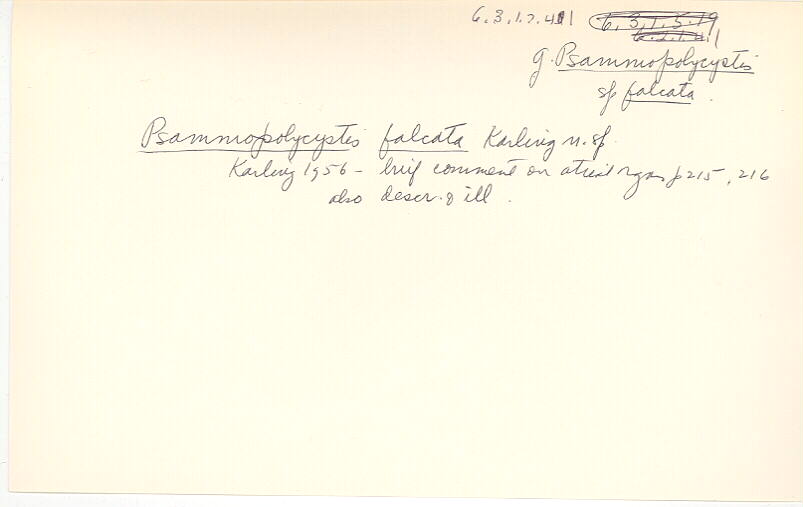 6.3.1.7.411 6.3.1.5.19
6.2.1.4.1
g. Psammopolycystis
sp falcata.
Psammopolycystis falcata Karling n. sp.
Karling 1956 - brief comment on atrial organ p 215, 216
also descr. & ill.